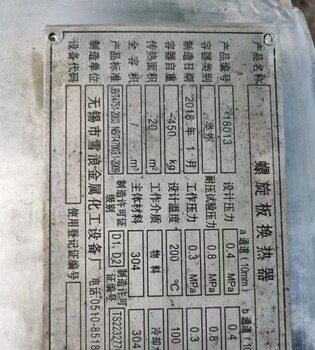 产品名称 螺旋板换热器
a通道(10mm) b通道(1
产品编号 r18013 设计压力 0.4 MPa 0.4
容器类别 类外 耐压试验压力 0.8 MPa 0.8
制造日期 2018年1月 工作压力 0.3 MPa 0.3
容器自重 ~450 kg 设计温度 200 ℃ 100
传热面积 20 m² 工作介质 物料 冷却
全容积 / m³ 主体材料 304 304
产品标准 制造许可证级别 D1、D2 制造许可证编号 TS22327
制造单位 无锡市雪浪金属化工设备厂 电话:0510-8518
设备代码 使用登记证编号